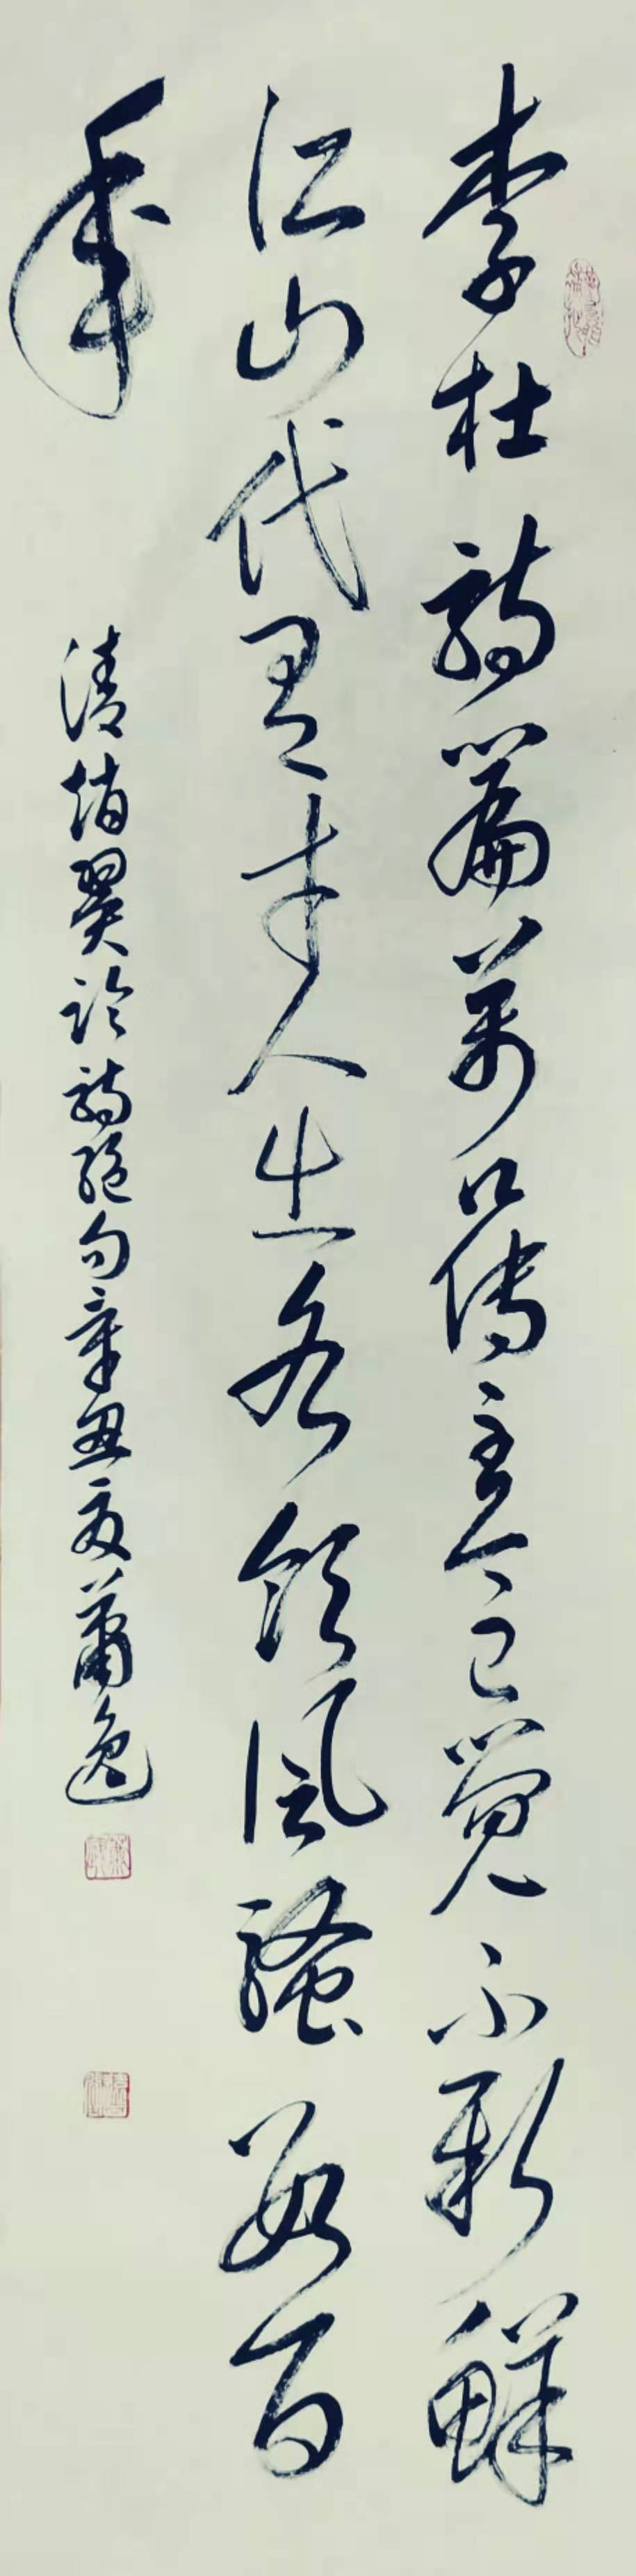 李杜詩篇萬口傳至今已覺不新鮮
江山代有才人出各領風騷數百
年
清趙翼論詩絕句辛丑夏蕭逸